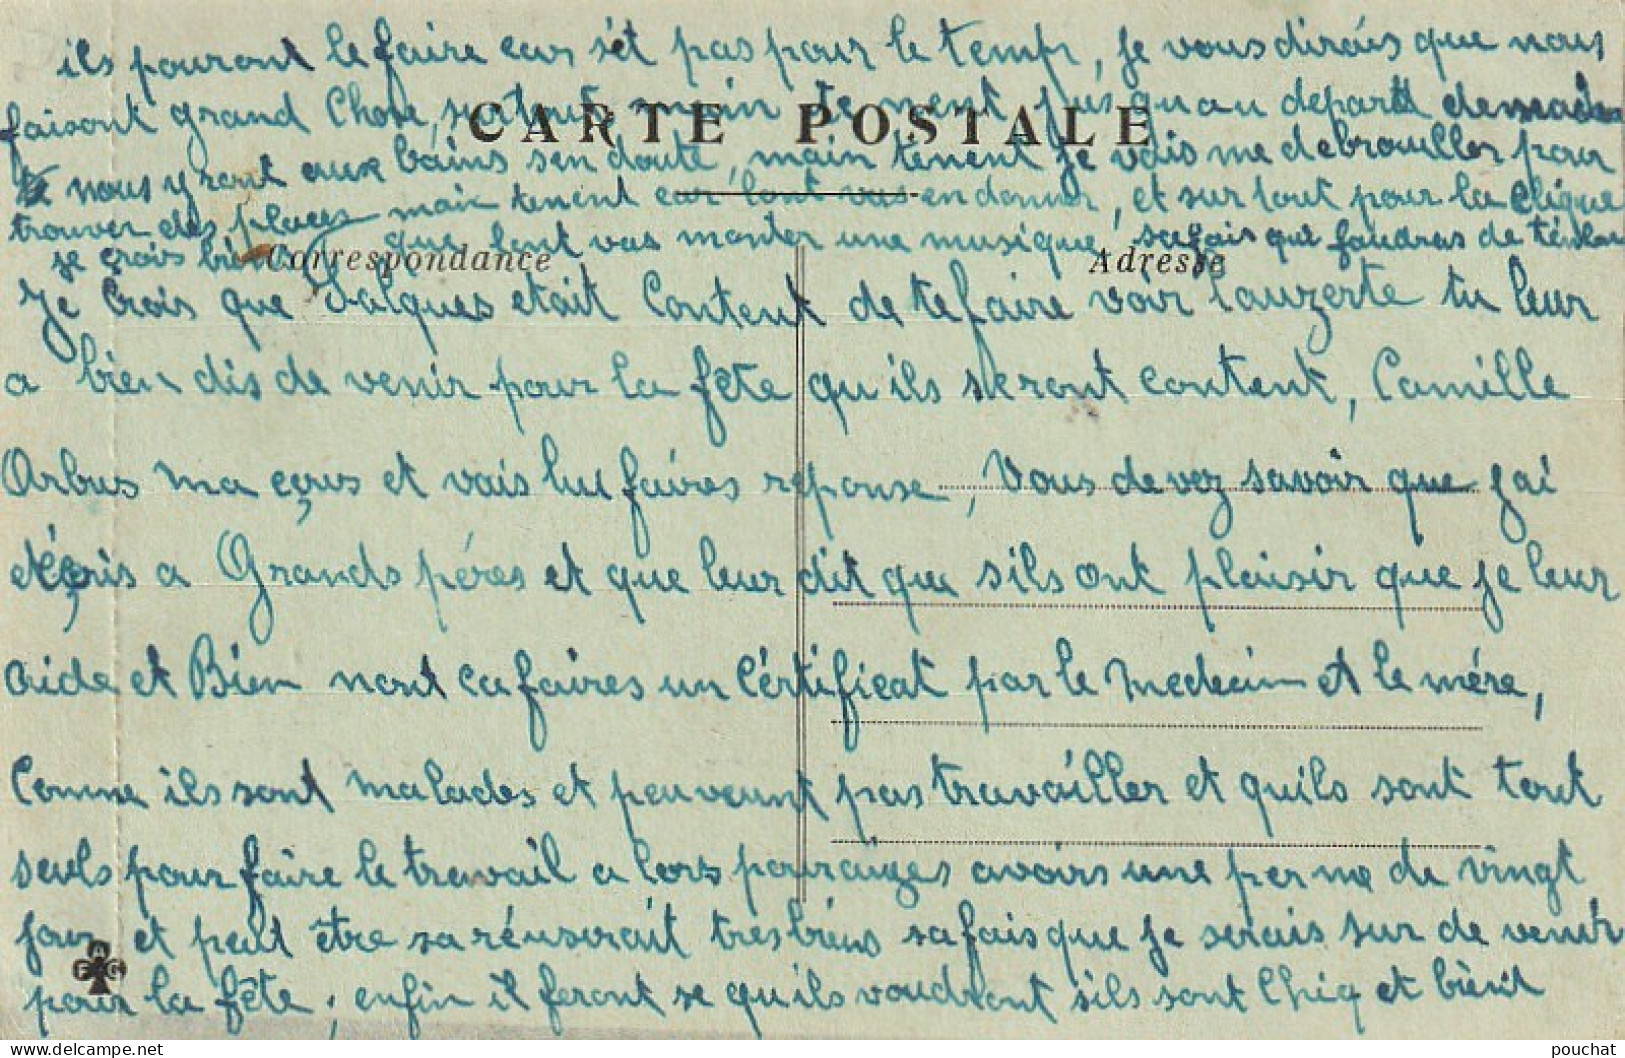 ils pouront le faire car sét pas pour le temp, je vous dirais que nous
faisont grand Chose, surtout main tenent jus qu au depart demain
CARTE POSTALE
nous y ront aux bains sen doute, main tenent je vais me debrouiller pour
trouver des places main tenent car lont vas en donner, et sur tout pour la clique
je crois bien que lont vas monter une musique, sa fais que faudras de
Correspondance
Adresse
Je Crois que Jalques etait Content de te faire voir Lauzerte tu leur
a bien dis de venir pour la fête qu ils seront content, Camille
Arbus ma eçris et vais lui faires reponse, Vous devez savoir que jai
éçris a Grands péres et que leur dit que sils ont plaisir que je leur
aide et Bien nont ca faires un Cértificat par le Medecin et le mére,
Comme ils sont malades et peuveunt pas travailler et quils sont tout
seuls pour faire le travail a lors pouraiges avoirs une per me de vingt
jour et peut être sa réuserait tres biens sa fais que je serais sur de venir
pour la fête, enfin il feront se qu ils voudront sils sont Chiq et bient
pouchat